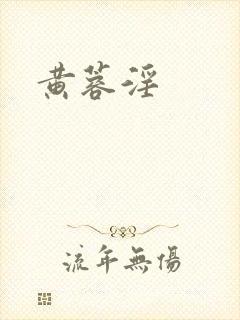 黄蓉淫
流年無傷